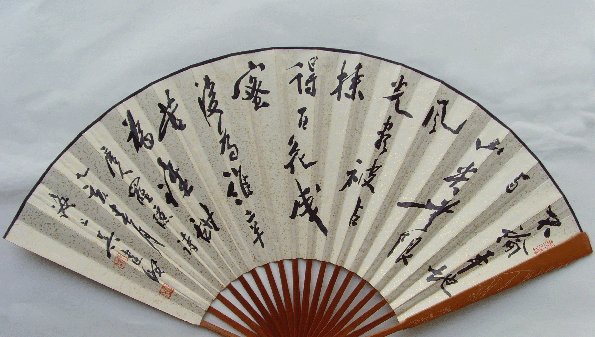 不論
平地
与山尖
無限
風
光盡被占
採
得百花成
蜜
後為誰辛
苦
為誰甜
羅隱詩